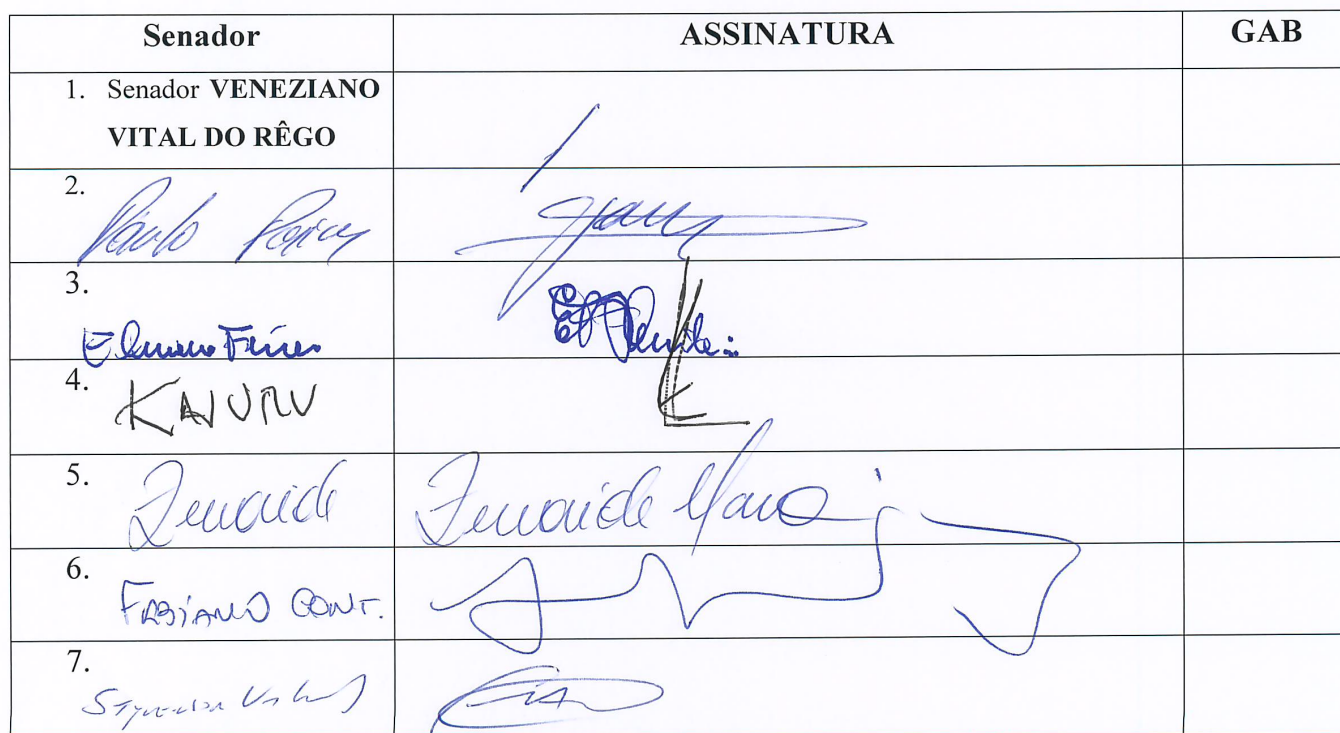 Senador ASSINATURA GAB
1. Senador VENEZIANO
VITAL DO RÊGO
2.
Paulo Paim
3.
Elmano Férrer
4.
KAJURU
5.
Zenaide Zenaide Maia
6.
FABIANO CONT.
7.
Styvenson Valentim